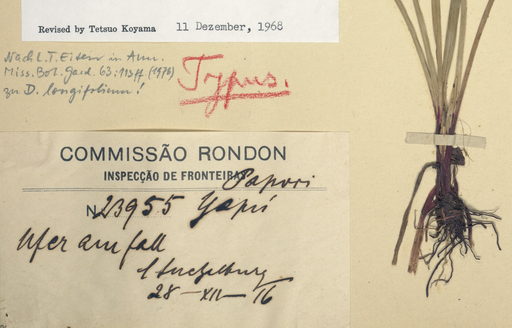 Revised by Tetsuo Koyama 11 Dezember, 1968
Nach L.T. Eiten in Ann.
Miss. Bot. Gard. 63: 113ff (1976)
zu D. longifolium!
Typus.
COMMISSÃO RONDON
INSPECÇÃO DE FRONTEIRAS
Papori
N 23955 Yapú
Ufer am fall
Luetzelburg
28-XII-